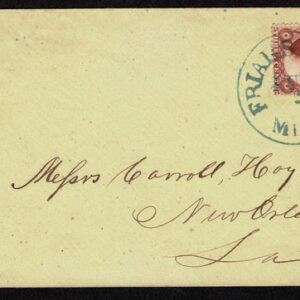 FRIAR
MI
Messrs Carroll, Hoy
New Orle
La